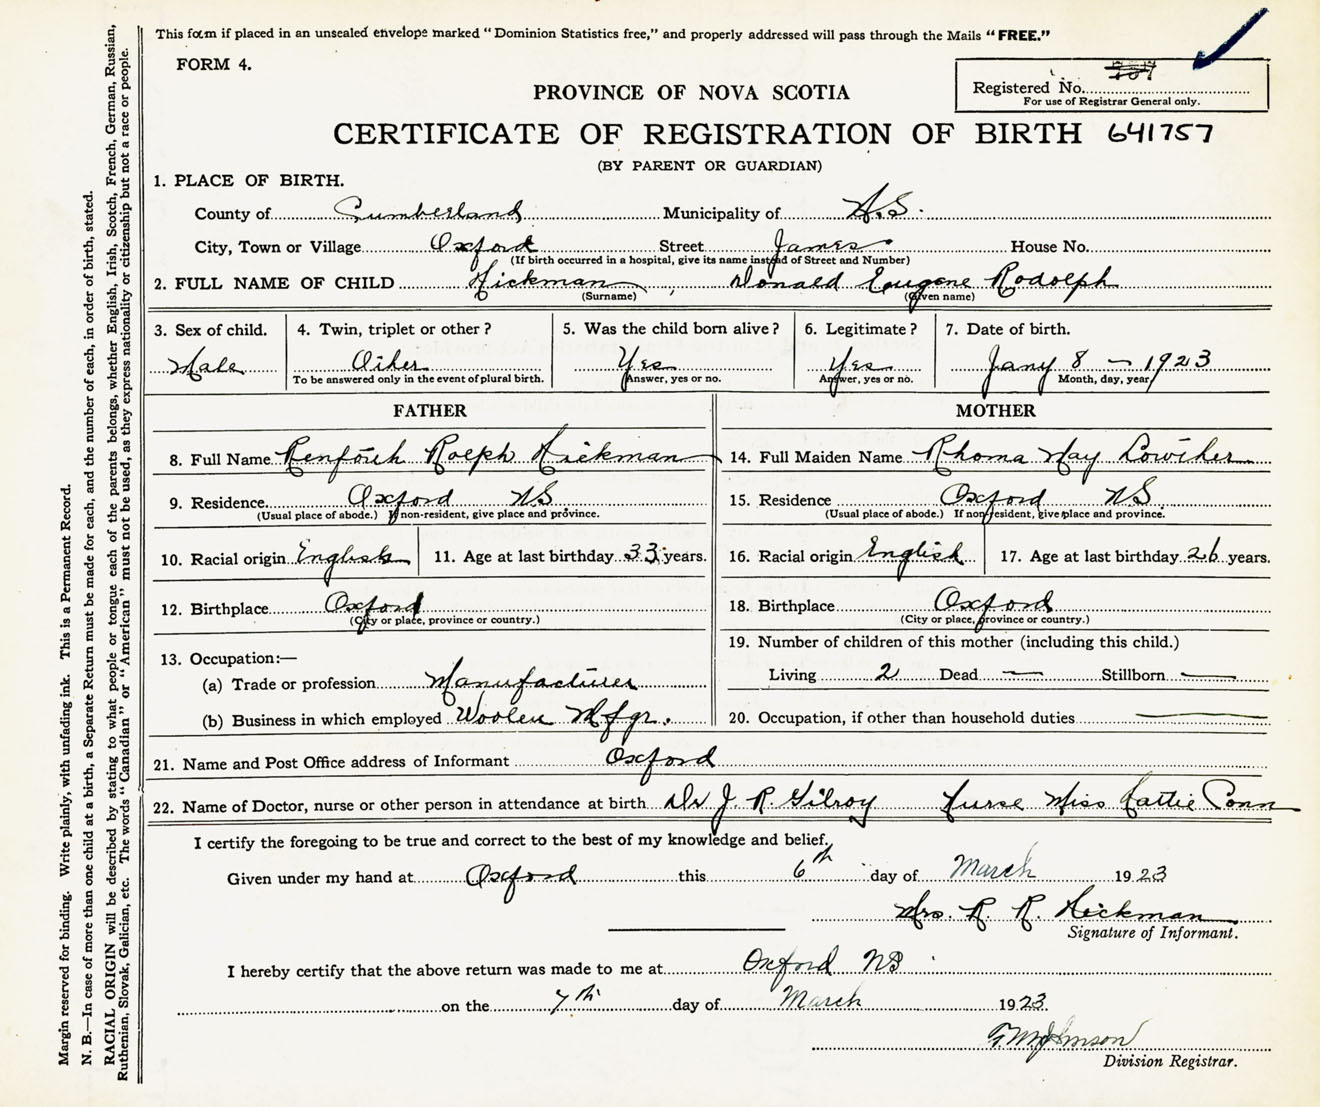 This form if placed in an unsealed envelope marked "Dominion Statistics free," and properly addressed will pass through the Mails "FREE."
FORM 4.
Registered No.
For use of Registrar General only.
PROVINCE OF NOVA SCOTIA
CERTIFICATE OF REGISTRATION OF BIRTH 641757
(BY PARENT OR GUARDIAN)
1. PLACE OF BIRTH.
County of Cumberland Municipality of N.S.
City, Town or Village Oxford Street James House No.
(If birth occurred in a hospital, give its name instead of Street and Number)
2. FULL NAME OF CHILD Hickman, Donald Eugene Rodolph
(Surname) (Given name)
3. Sex of child. 4. Twin, triplet or other? 5. Was the child born alive? 6. Legitimate? 7. Date of birth.
Male Other Yes Yes Jany 8 - 1923
To be answered only in the event of plural birth. Answer, yes or no. Answer, yes or no. Month, day, year
FATHER MOTHER
8. Full Name Ralph Hickman 14. Full Maiden Name Rhoma May Lowther
9. Residence Oxford NS 15. Residence Oxford NS
(Usual place of abode.) If non-resident, give place and province. (Usual place of abode.) If non-resident, give place and province.
10. Racial origin English 11. Age at last birthday 33 years. 16. Racial origin English 17. Age at last birthday 26 years.
12. Birthplace Oxford 18. Birthplace Oxford
(City or place, province or country.) (City or place, province or country.)
19. Number of children of this mother (including this child.)
13. Occupation:—
(a) Trade or profession Manufacturer Living 2 Dead — Stillborn —
(b) Business in which employed Woolen Mfgr. 20. Occupation, if other than household duties —
21. Name and Post Office address of Informant Oxford
22. Name of Doctor, nurse or other person in attendance at birth Dr J. R. Gilroy Nurse Miss Hattie Conn
I certify the foregoing to be true and correct to the best of my knowledge and belief.
Given under my hand at Oxford this 6th day of March 1923
Mrs. R. R. Hickman
Signature of Informant.
I hereby certify that the above return was made to me at Oxford NS
on the 7th day of March 1923.
Johnson
Division Registrar.
Margin reserved for binding. Write plainly, with unfading ink. This is a Permanent Record.
N. B.—In case of more than one child at a birth, a Separate Return must be made for each, and the number of each, in order of birth, stated.
RACIAL ORIGIN will be described by stating to what people or tongue each of the parents belongs, whether English, Irish, Scotch, French, German, Russian,
Ruthenian, Slovak, Galician, etc. The words "Canadian" or "American" must not be used, as they express nationality or citizenship but not a race or people.